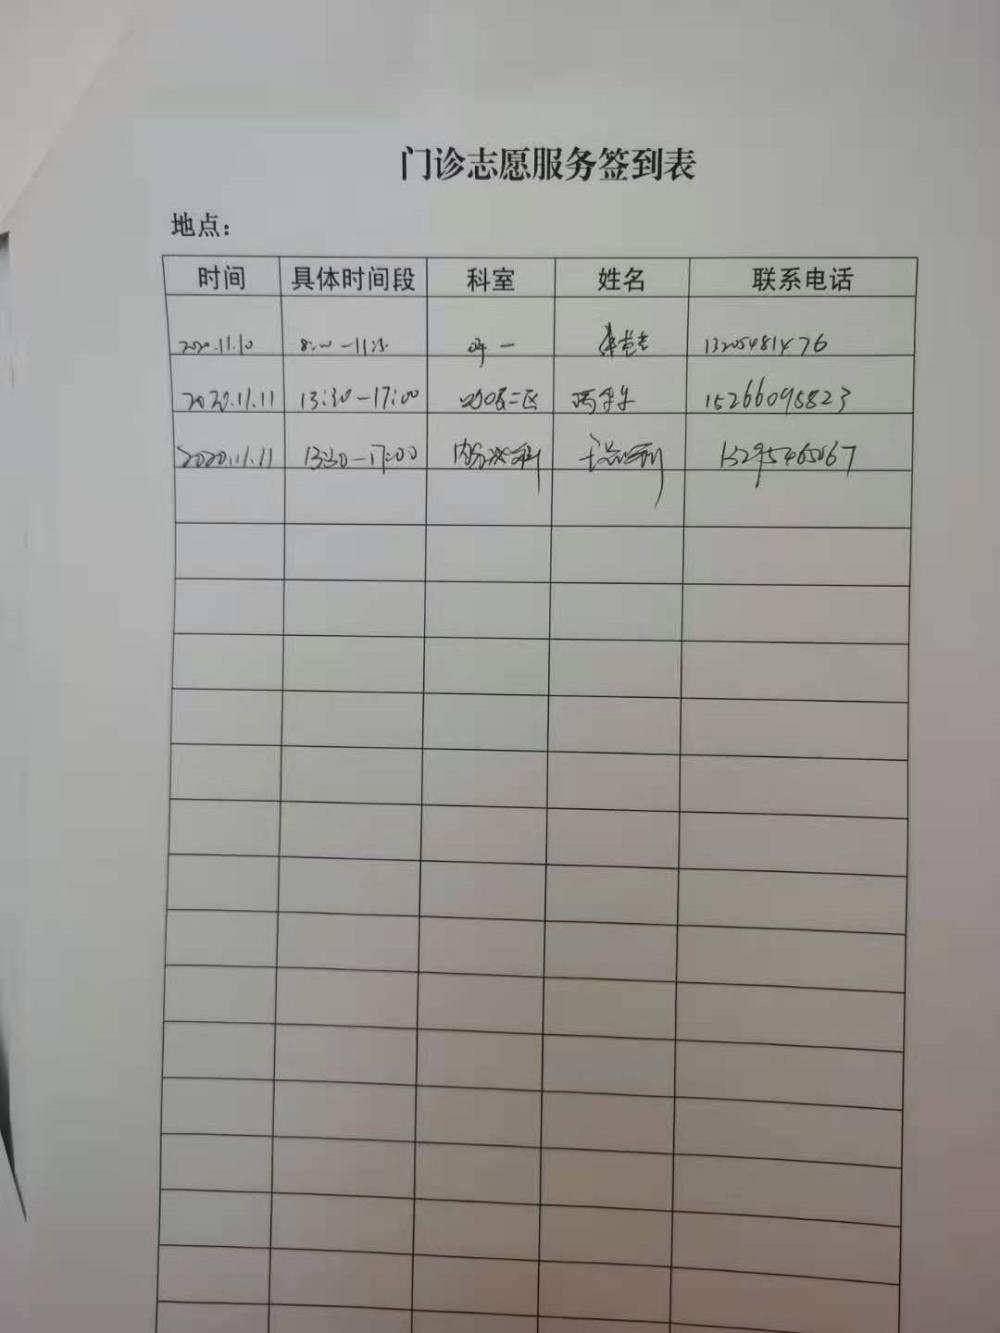 门诊志愿服务签到表
地点：
时间 具体时间段 科室 姓名 联系电话
2020.11.10 8:00-11:30 呼一 13205481476
2020.11.11 13:30-17:00 二区 15266098823
2020.11.11 13:30-17:00 内分泌科